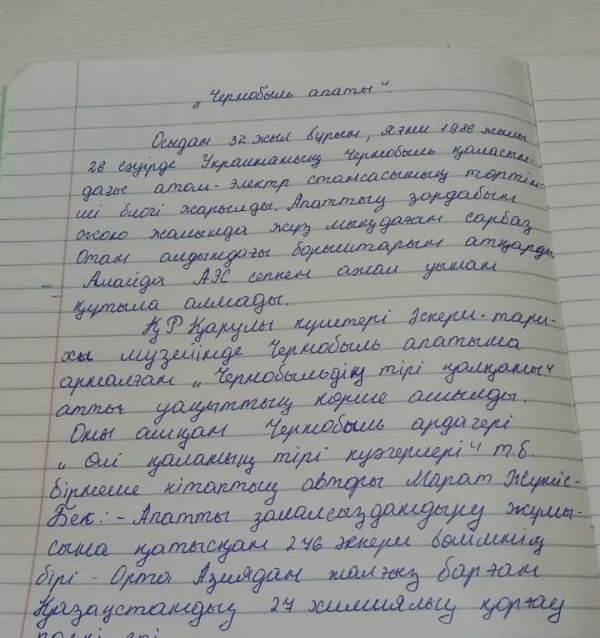 "Чернобыль апаты".
Осыдан 32 жыл бұрын, яғни 1986 жылы
26 сәуірде Украинаның Чернобыль қаласын-
дағы атом-электр стансасының төртін-
ші блогі жарылды. Апаттың зардабын
жою жолында жүз мыңдаған сарбаз
Отан алдындағы борыштарын атқарды.
Алайда АЭС сепкен ажал уынан
құтыла алмады.
ҚР Қарулы күштері Әскери-тари-
хы музейінде Чернобыль апатына
арналған "Чернобыльдің тірі қалқаны"
атты уақыттың көрме ашылды.
Оны ашқан Чернобыль ардагері
"Өлі қаланың тірі куәгерлері" т.б.
бірнеше кітаптың авторы Марат Жүніс-
бек: - Апатты залалсыздандыру жұмы-
сына қатысқан 276 әскери бөлімнің
бірі - Орта Азиядан жалғыз барған
Қазақстандық 27 химиялық қорғау
полкі еді